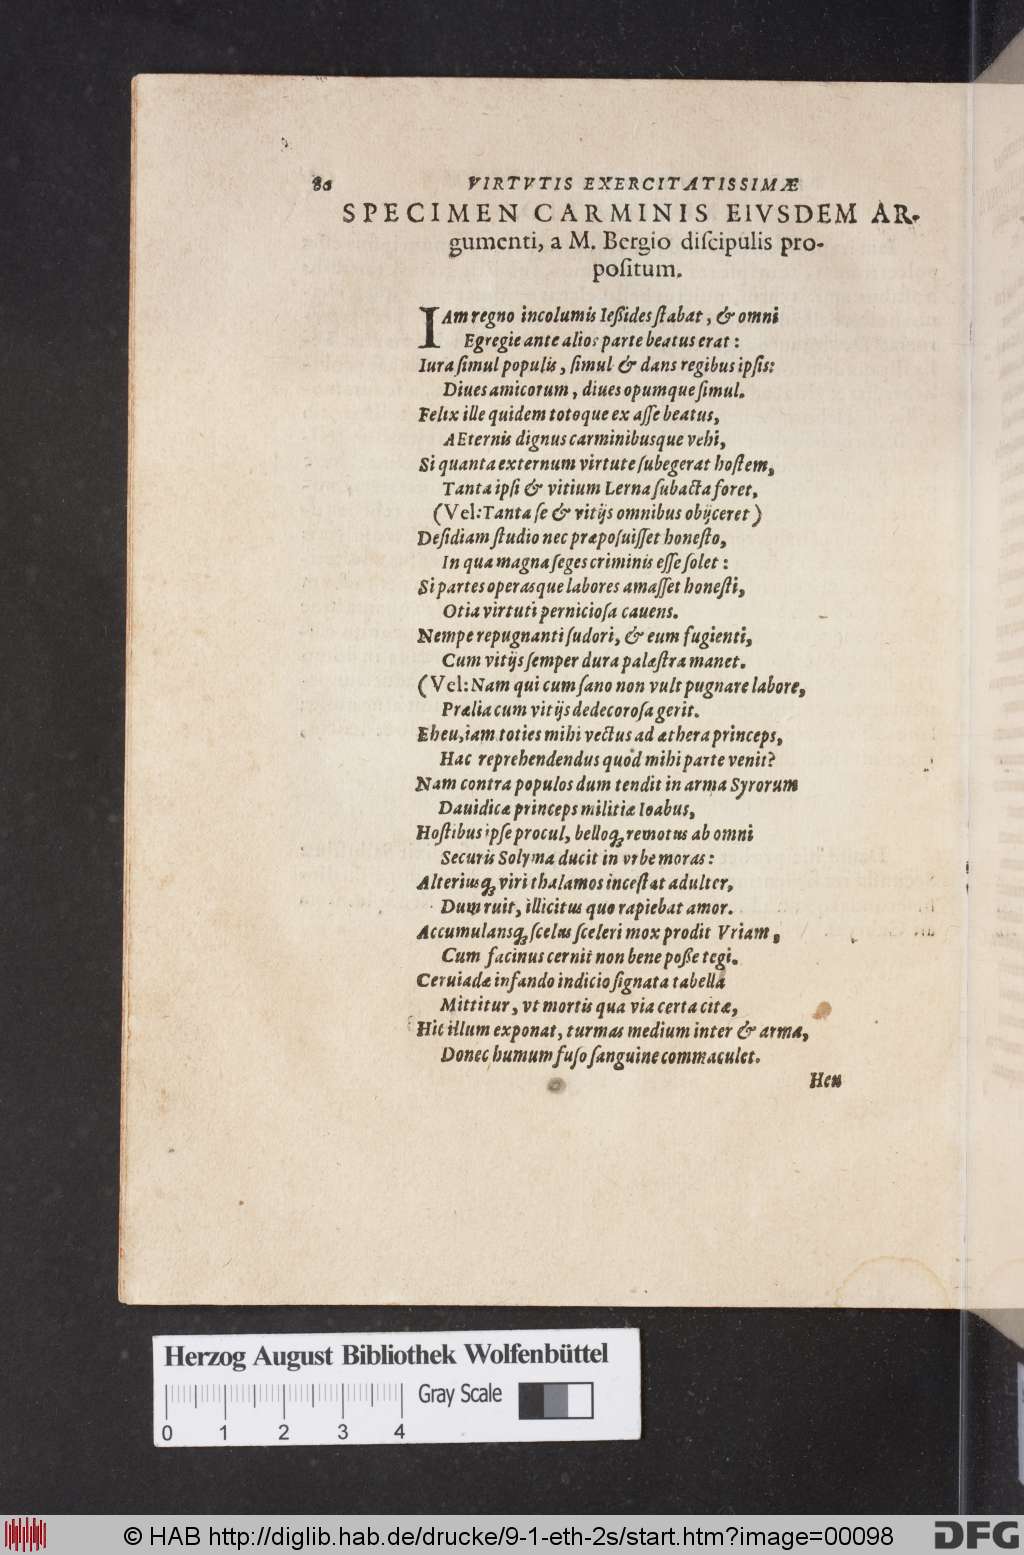 80 VIRTVTIS EXERCITATISSIMÆ
SPECIMEN CARMINIS EIVSDEM AR-
gumenti, a M. Bergio diſcipulis pro-
poſitum.
IAm regno incolumis Ießides ſtabat, & omni
Egregie ante alios parte beatus erat:
Iura ſimul populis, ſimul & dans regibus ipſis:
Diues amicorum, diues opumque ſimul.
Felix ille quidem totoque ex aſſe beatus,
AEternis dignus carminibusque vehi,
Si quanta externum virtute ſubegerat hoſtem,
Tanta ipſi & vitium Lerna ſubacta foret,
(Vel: Tanta ſe & vitijs omnibus obijceret)
Deſidiam ſtudio nec præpoſuiſſet honeſto,
In qua magna ſeges criminis eſſe ſolet:
Si partes operasque labores amaſſet honeſti,
Otia virtuti pernicioſa cauens.
Nempe repugnanti ſudori, & eum fugienti,
Cum vitijs ſemper dura palæſtra manet.
(Vel: Nam qui cum ſano non vult pugnare labore,
Prælia cum vitijs dedecoroſa gerit.
Eheu, iam toties mihi vectus ad æthera princeps,
Hac reprehendendus quod mihi parte venit?
Nam contra populos dum tendit in arma Syrorum
Dauidicæ princeps militiæ Ioabus,
Hoſtibus ipſe procul, belloq́; remotus ab omni
Securis Solyma ducit in vrbe moras:
Alteriusq́; viri thalamos inceſtat adulter,
Dum ruit, illicitus quo rapiebat amor.
Accumulansq́; ſcelus ſceleri mox prodit Vriam,
Cum facinus cernit non bene poße tegi.
Ceruiadæ infando indicio ſignata tabella
Mittitur, vt mortis qua via certa citæ,
Hic illum exponat, turmas medium inter & arma,
Donec humum fuſo ſanguine commaculet.
Heu
Herzog August Bibliothek Wolfenbüttel
Gray Scale
0 1 2 3 4
© HAB http://diglib.hab.de/drucke/9-1-eth-2s/start.htm?image=00098
DFG